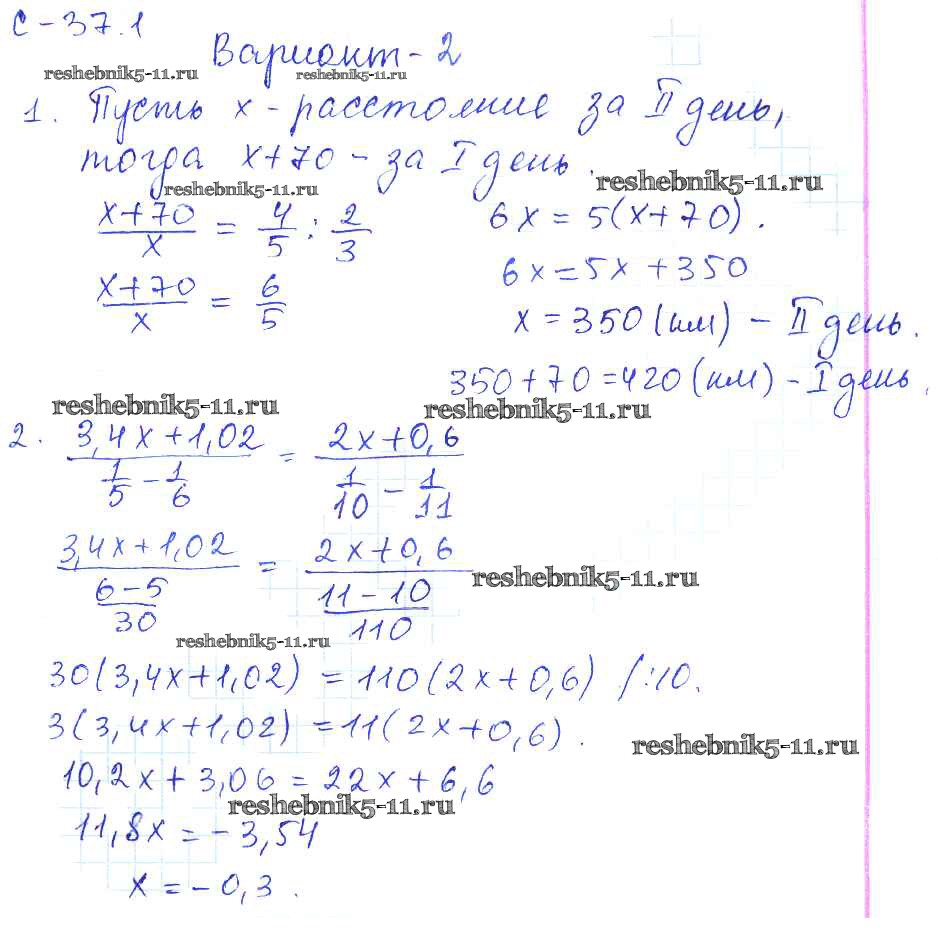 С-37.1
Вариант-2
reshebnik5-11.ru reshebnik5-11.ru
1. Пусть x - расстояние за II день,
тогда x+70 - за I день
reshebnik5-11.ru reshebnik5-11.ru
(x+70)/x = 4/5 : 2/3
(x+70)/x = 6/5
6x = 5(x+70).
6x = 5x + 350
x = 350 (км) - II день.
350+70=420 (км) - I день.
reshebnik5-11.ru reshebnik5-11.ru
2. (3,4x+1,02)/(1/5 - 1/6) = (2x+0,6)/(1/10 - 1/11)
(3,4x+1,02)/((6-5)/30) = (2x+0,6)/((11-10)/110)
reshebnik5-11.ru
reshebnik5-11.ru
30(3,4x+1,02) = 110(2x+0,6) /:10.
3(3,4x+1,02) = 11(2x+0,6).
reshebnik5-11.ru
10,2x + 3,06 = 22x + 6,6
reshebnik5-11.ru
11,8x = -3,54
x = -0,3.